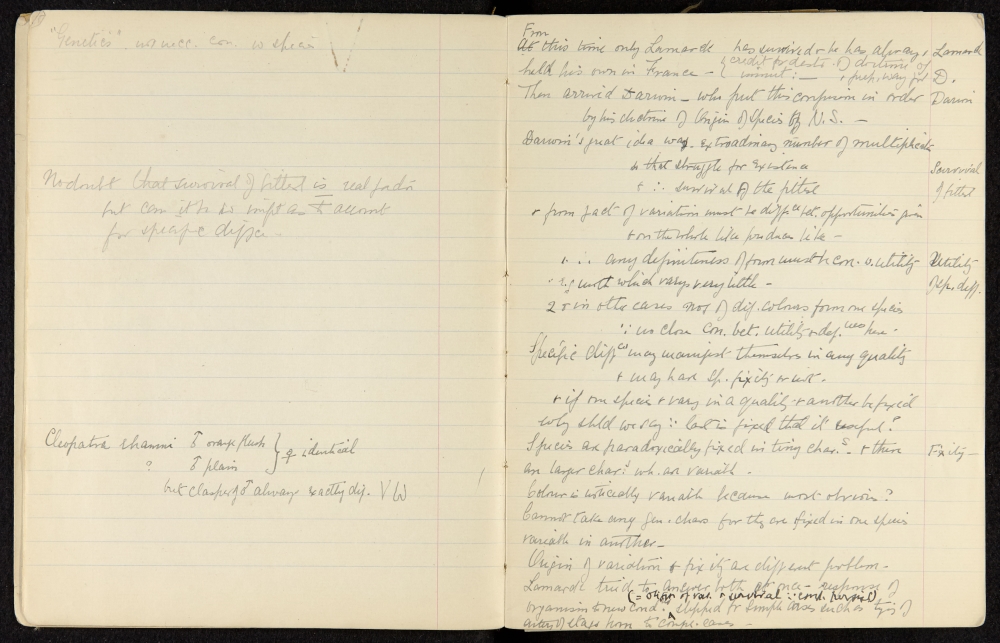 "Genetics" not necc. con. w species
No doubt that survival of fittest is real factor
but can it be so
for specific diffces
Cleopatra rhamni ♂ orange flush
? ♂ plain } ♀ identical
but claspers of ♂ always exactly dif. V W
From
At this time only Lamarck has survived & he has always
held his own in France — { credit for destr. of doctrine of
immut: — & prep. way for D.
Lamarck
Then arrived Darwin — who put this confusion in order
Darwin
by his doctrine of Origin of Species by N.S. —
Darwin's great idea was extraordinary number of
so that struggle for existence
& ∴ survival of the fittest
Survival
of fittest
& from fact of variation must be diffce bet. opportunities
& on the whole like produces like —
& ∴ any definiteness of form must be con. w. utility
Utility
of sp. diff.
which varys very little —
2 & in other cases not of dif. colours form one species
∵ no close con. bet. utility & def. here.
Specific diffces may manifest themselves in any quality
& may have sp. fixity or not.
& if one species & vary in a quality & another be fixed
why shld we say ∵ last is fixed that it useful?
Species are paradoxically fixed in tiny chars. & there
Fixity —
are larger chars. wh. are variable.
Colour is noticeably variable because most obvious?
Cannot take any gen. chars for they are fixed in one species
variable in another —
Origin of variation & fixity are different problem —
Lamarck tried to answer both at once — response of
(= origin of var. & survival ∵ cond. persist)
organism to new cond. ‸ slipped fr simple cases such as
from to compl. cases —